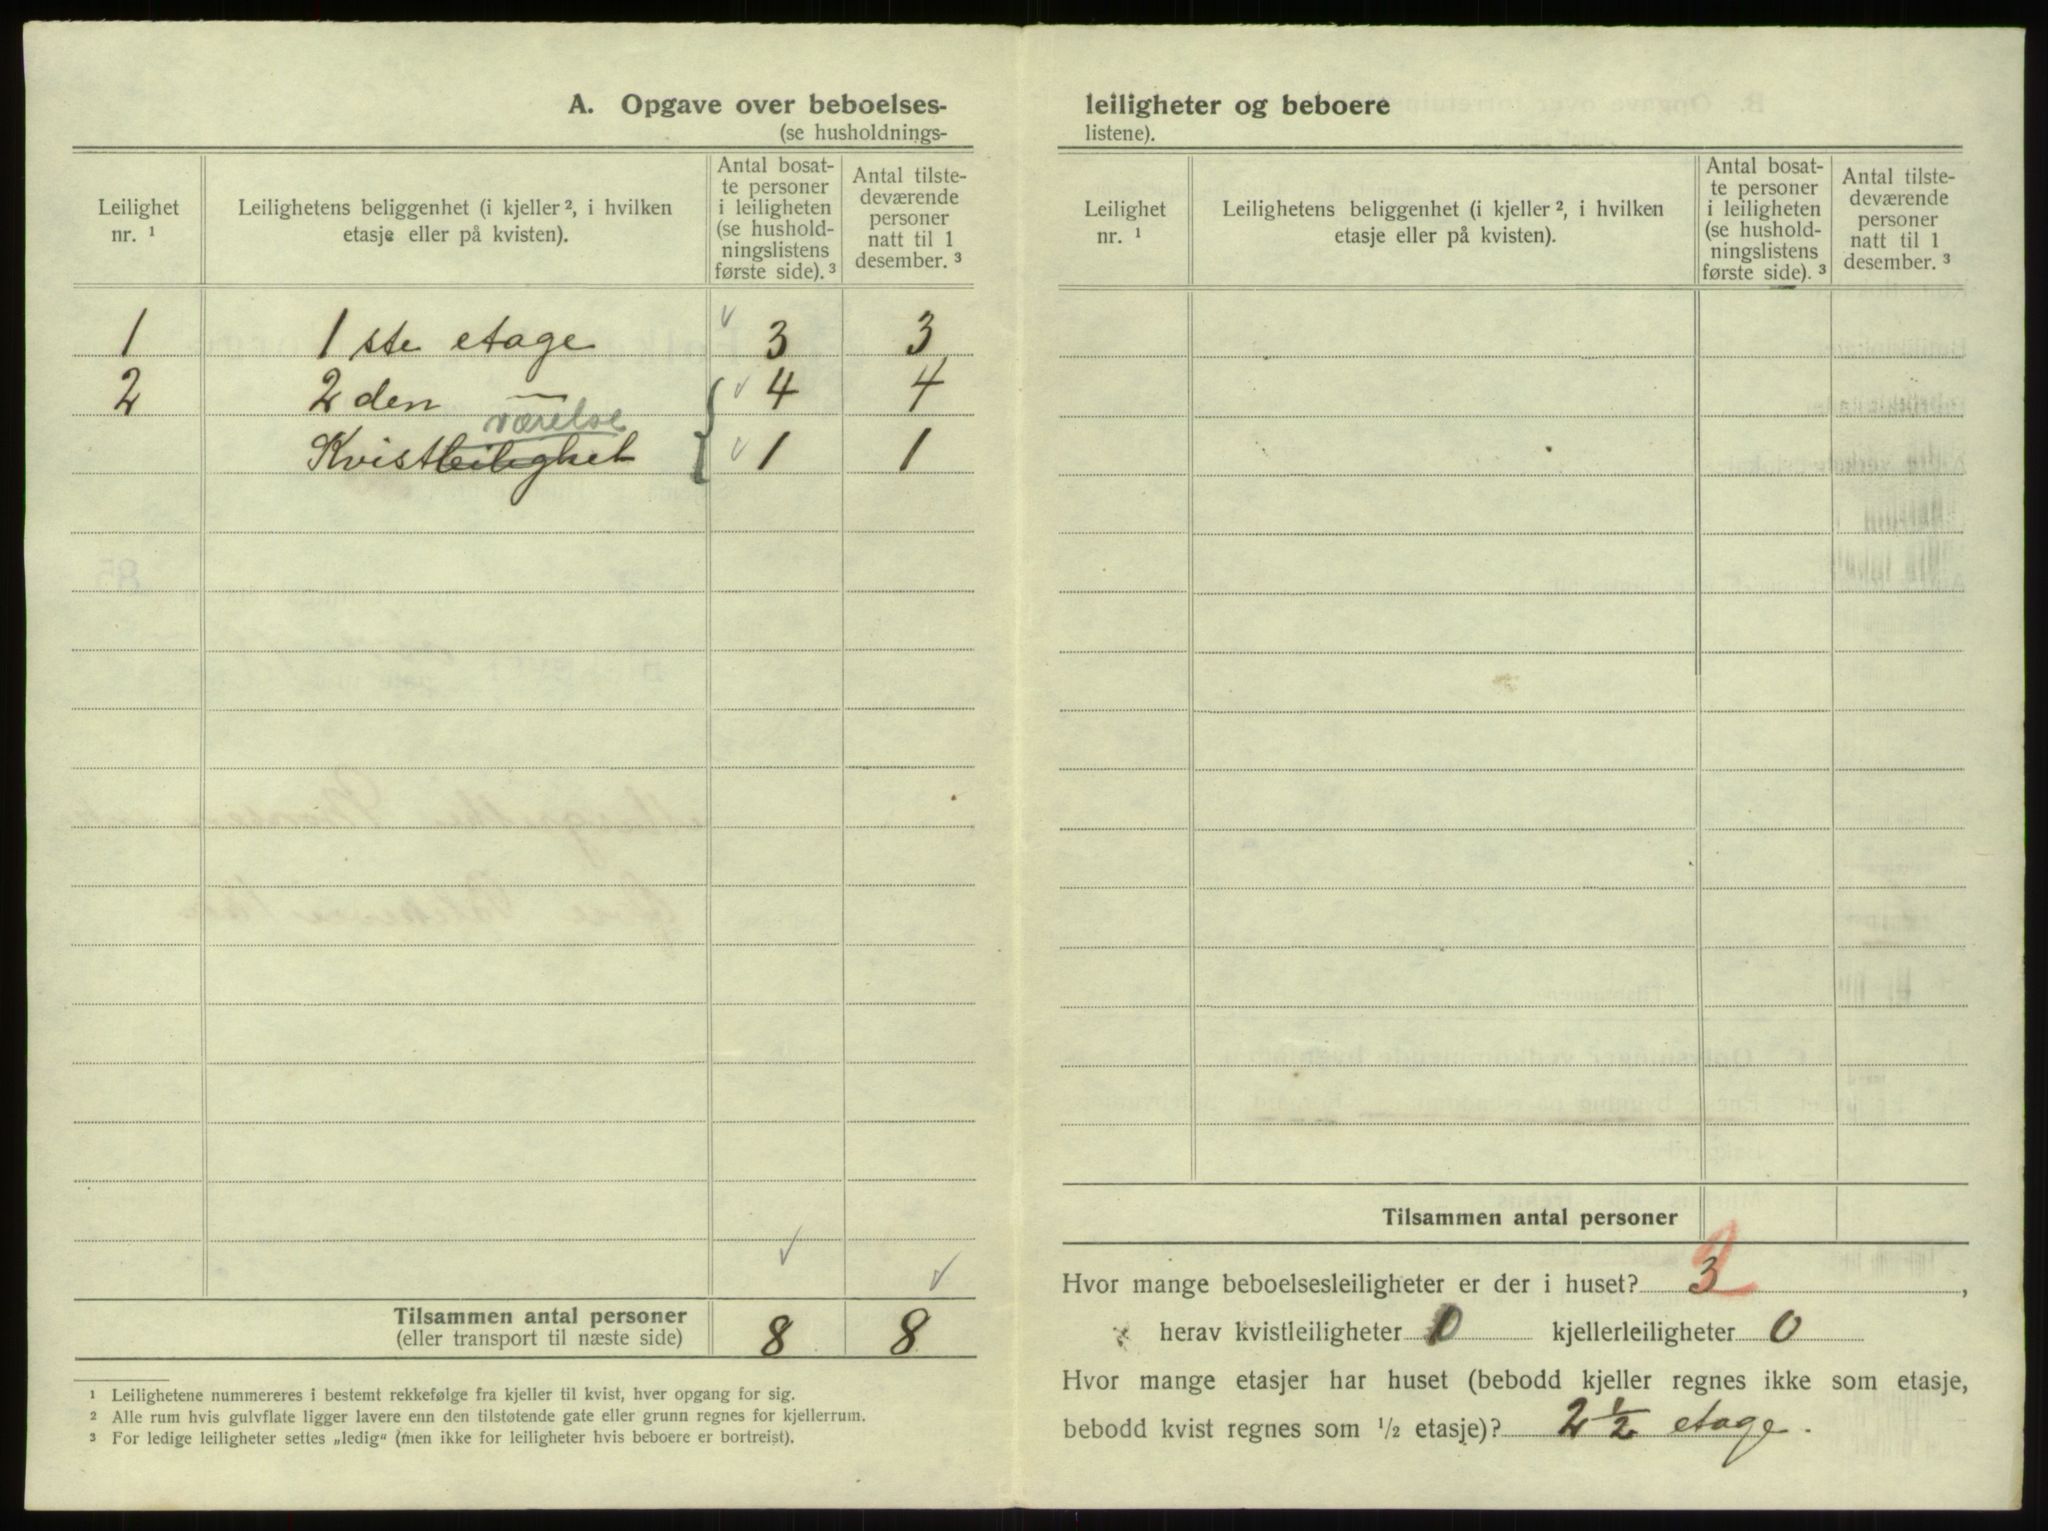 A. Opgave over beboelses-
(se husholdnings-
Leilighet
nr. 1
Leilighetens beliggenhet (i kjeller 2, i hvilken
etasje eller på kvisten).
Antal bosat-
te personer
i leiligheten
(se hushold-
ningslistens
første side). 3
Antal tilste-
deværende
personer
natt til 1
desember. 3
1 1 ste etage 3 3
2 2 den — 4 4
værelse
Kvistleilighet 1 1
Tilsammen antal personer
(eller transport til næste side) 8 8
1 Leilighetene nummereres i bestemt rekkefølge fra kjeller til kvist, hver opgang for sig.
2 Alle rum hvis gulvflate ligger lavere enn den tilstøtende gate eller grunn regnes for kjellerrum.
3 For ledige leiligheter settes „ledig“ (men ikke for leiligheter hvis beboere er bortreist).
leiligheter og beboere
listene).
Leilighet
nr. 1
Leilighetens beliggenhet (i kjeller 2, i hvilken
etasje eller på kvisten).
Antal bosat-
te personer
i leiligheten
(se hushold-
ningslistens
første side). 3
Antal tilste-
deværende
personer
natt til 1
desember. 3
Tilsammen antal personer
Hvor mange beboelsesleiligheter er der i huset? 3 2,
herav kvistleiligheter 0 kjellerleiligheter 0
Hvor mange etasjer har huset (bebodd kjeller regnes ikke som etasje,
bebodd kvist regnes som 1/2 etasje)? 2 1/2 etage.